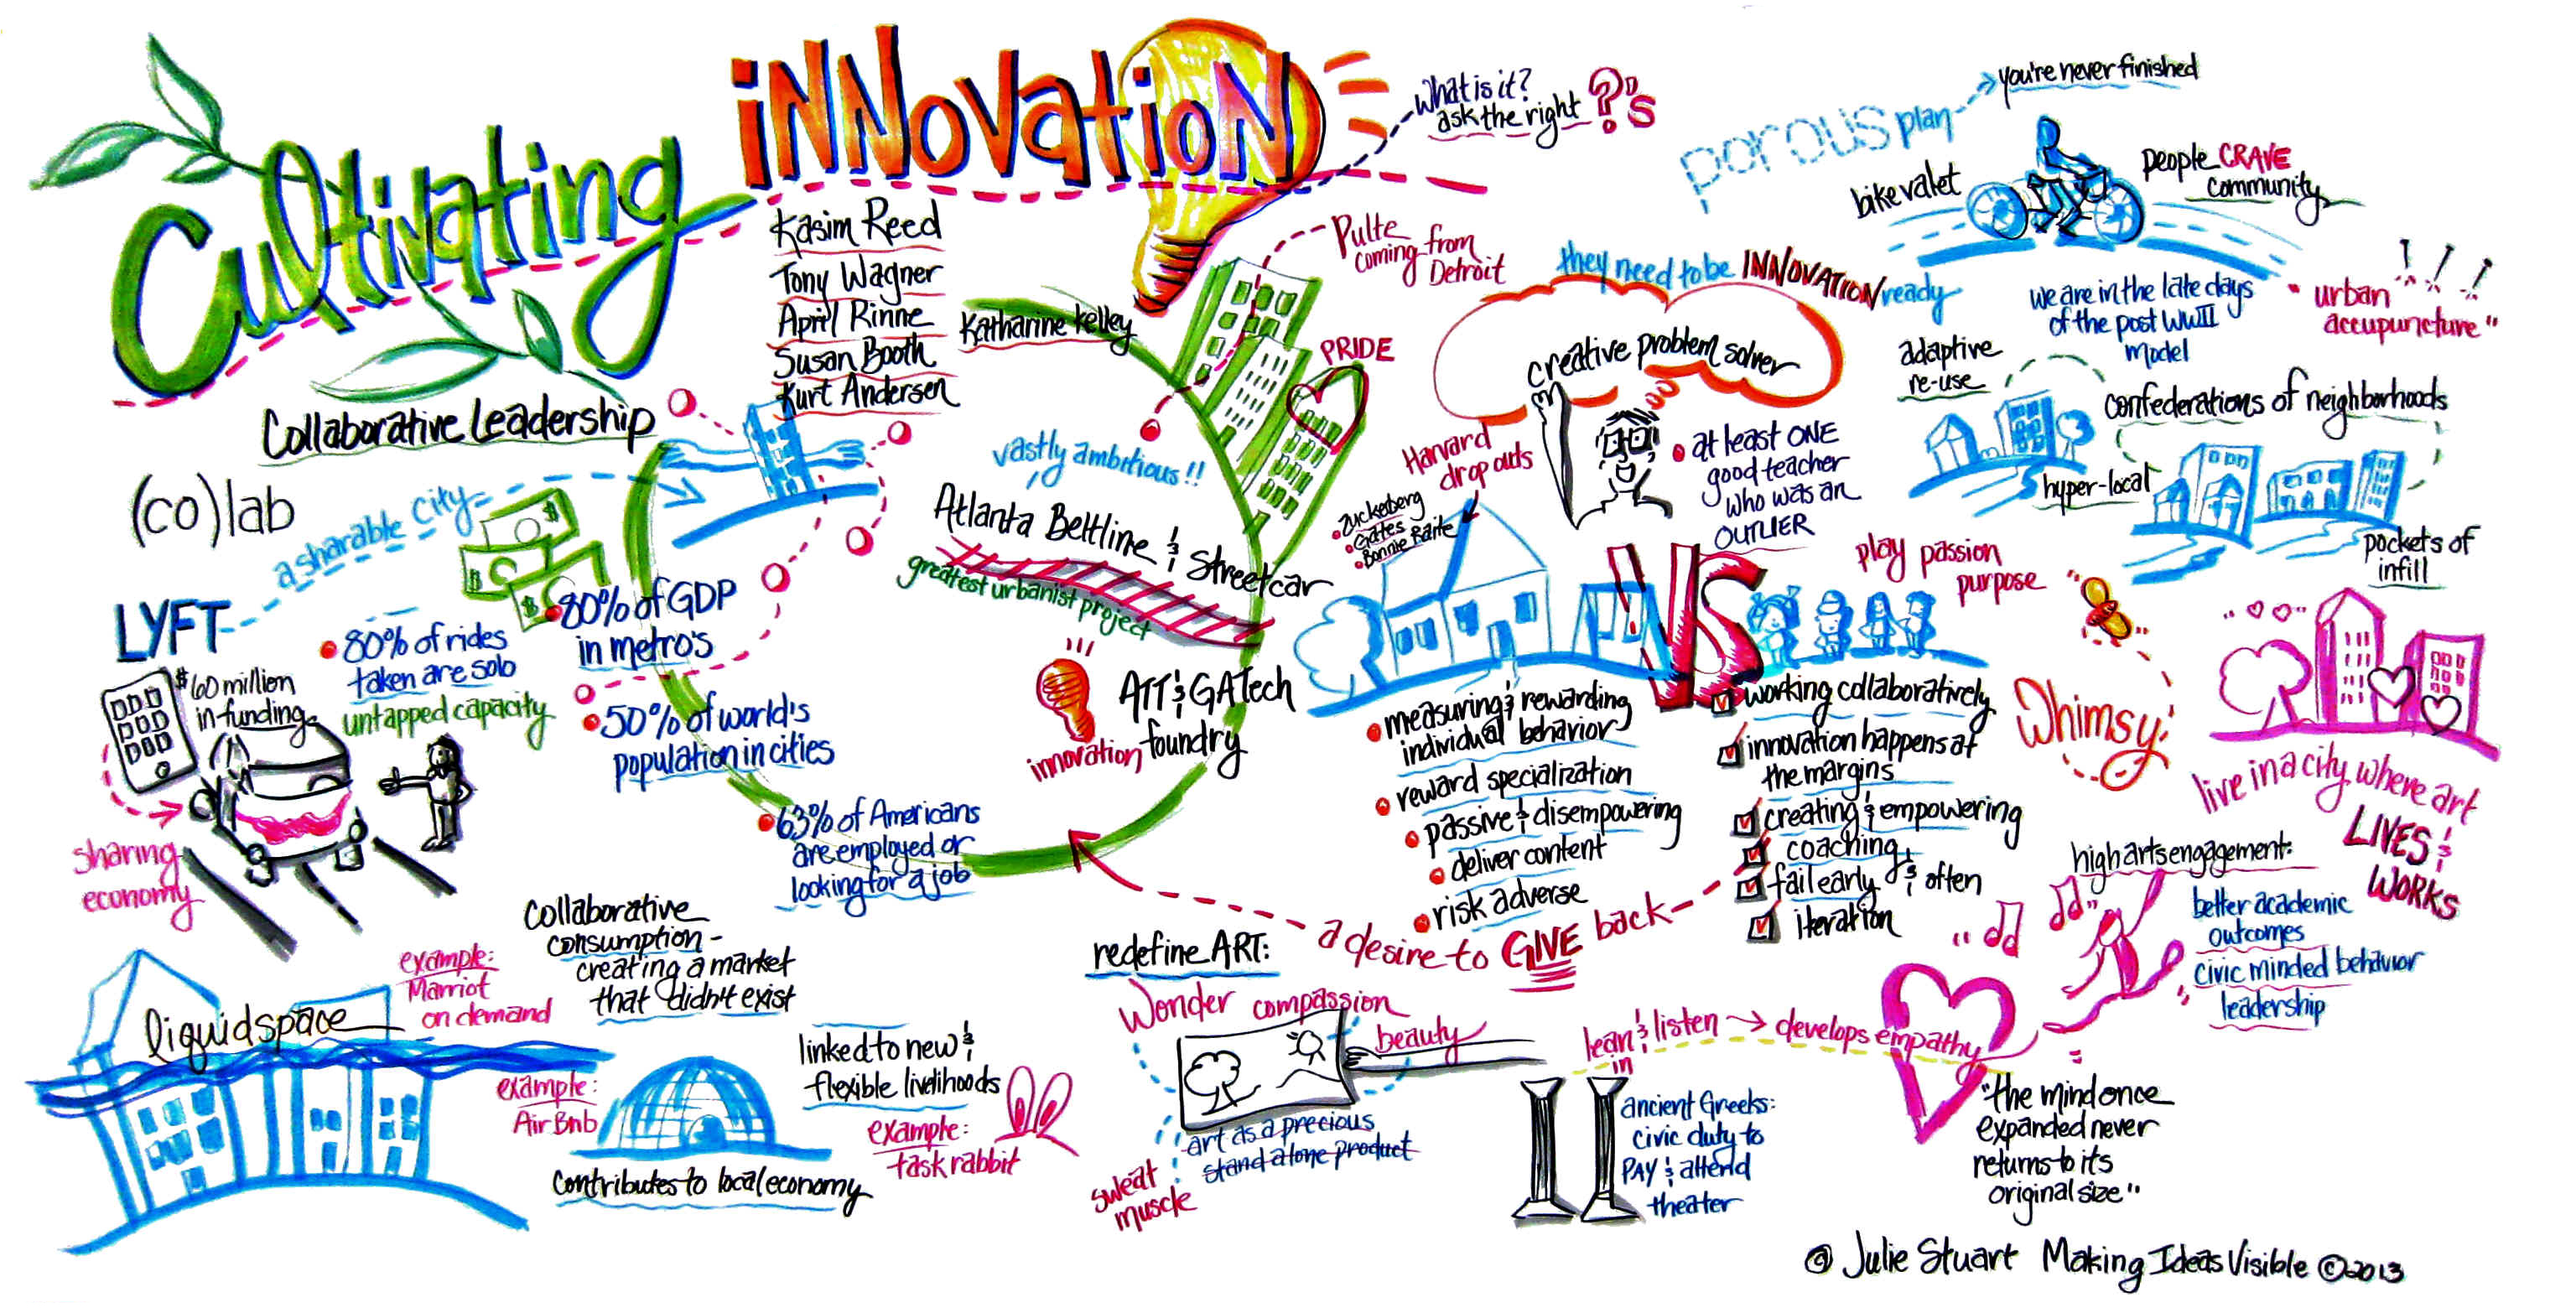 Cultivating
iNNovatioN
what is it?
ask the right ?'s
Kasim Reed
Tony Wagner
April Rinne
Susan Booth
Kurt Andersen
Katharine Kelley
Collaborative Leadership
(co)lab
a sharable city
LYFT
$60 million
in funding
80% of rides
taken are solo
untapped capacity
sharing
economy
80% of GDP
in metro's
50% of world's
population in cities
63% of Americans
are employed or
looking for a job
Pulte
coming from
Detroit
PRIDE
vastly ambitious!!
Atlanta Beltline & Streetcar
greatest urbanist project
ATT & GATech
innovation foundry
they need to be INNOVATION ready
creative problem solver
Harvard
drop outs
Zuckerberg
Gates
Bonnie Raite
at least ONE
good teacher
who was an
OUTLIER
VS
play passion
purpose
measuring & rewarding
individual behavior
reward specialization
passive & disempowering
deliver content
risk adverse
working collaboratively
innovation happens at
the margins
creating & empowering
coaching
fail early & often
iteration
a desire to GIVE back
porous plan
you're never finished
bike valet
people CRAVE
community
we are in the late days
of the post WWII
model
"urban
accupuncture"
adaptive
re-use
confederations of neighborhoods
hyper-local
pockets of
infill
Whimsy:
live in a city where art
LIVES &
WORKS
high arts engagement:
better academic
outcomes
civic minded behavior
leadership
collaborative
consumption -
creating a market
that didn't exist
example:
Marriot
on demand
liquidspace
example:
Air Bnb
contributes to local economy
linked to new &
flexible livelihoods
example:
task rabbit
redefine ART:
Wonder compassion
beauty
art as a precious
stand alone product
sweat
muscle
lean & listen → develops empathy
in
ancient Greeks:
civic duty to
PAY & attend
theater
"the mind once
expanded never
returns to its
original size"
@ Julie Stuart Making Ideas Visible © 2013